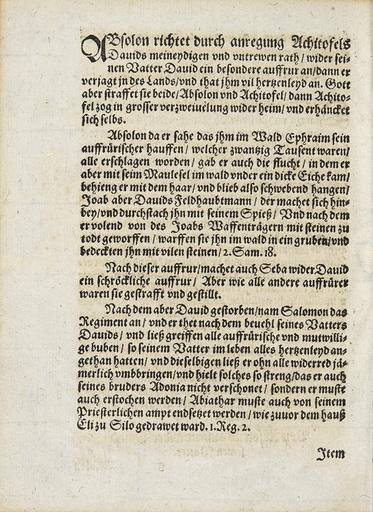 ABsolon richtet durch anregung Achitofels
Dauids meineydigen vnd vntrewen rath/ wider sei-
nen Vatter Dauid ein besondere auffrur an/dann er
verjagt jn des Lands/vnd that jhm vil hertzenleyd an. Gott
aber straffet sie beide/ Absolon vnd Achitofel/ dann Achito-
fel zog in grosser verzweiuelung wider heim/ vnd erhäncket
sich selbs.
Absolon da er sahe das jhm im Wald Ephraim sein
auffrürischer hauffen/ welcher zwantzig Tausent waren/
alle erschlagen worden/ gab er auch die flucht/ in dem er
aber mit seim Maulesel im wald vnder ein dicke Eiche kam/
behieng er mit dem haar/ vnd blieb also schwebend hangen/
Joab aber Dauids Feldhaubtmann/ der machet sich hin-
bey/vnd durchstach jhn mit seinem Spieß/ Vnd nach dem
er volend von des Joabs Waffenträgern mit steinen zu
todt geworffen/ warffen sie jhn im wald in ein gruben/vnd
bedeckten jhn mit vilen steinen/ 2. Sam. 18.
Nach diser auffrur/machet auch Seba wider Dauid
ein schröckliche auffrur/ Aber wie alle andere auffrürer
waren sie gestrafft vnd gestilt.
Nach dem aber Dauid gestorben/nam Salomon das
Regiment an/ vnd er thet nach dem beuehl seines Vatters
Dauids/ vnd ließ greiffen alle auffrürische vnd mutwilli-
ge buben/ so seinem Vatter im leben alles hertzenleyd an-
gethan hatten/ vnd dieselbigen ließ er ohn alle widerred jä-
merlich vmbbringen/vnd hielt solches so streng/das er auch
seines bruders Adonia nicht verschonet/ sondern er muste
auch erstochen werden/ Abiathar muste auch von seinem
Priesterlichen ampt endsetzet werden/ wie zuuor dem hauß
Eli zu Silo gedrawet ward. 1. Reg. 2.
Item